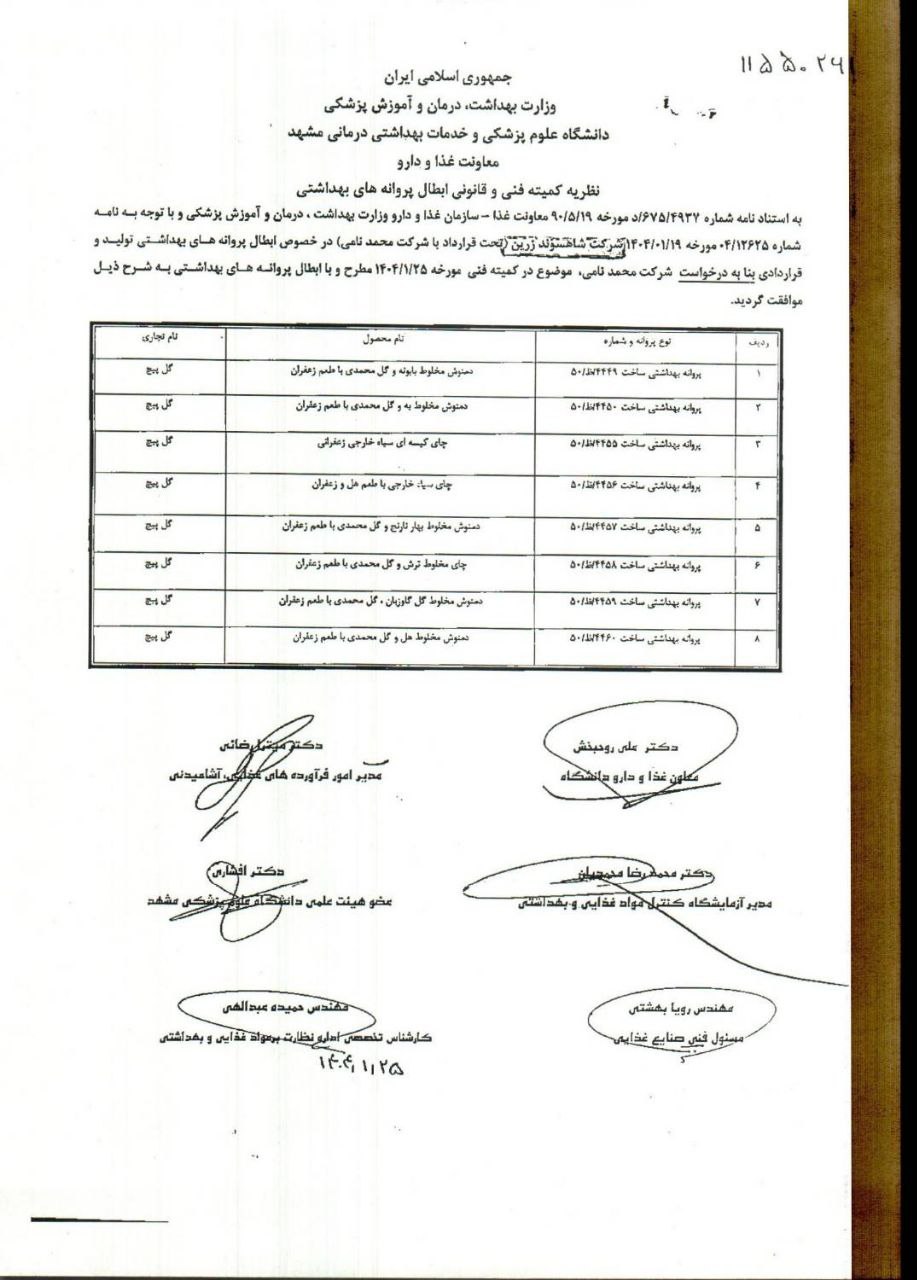 ۱۱۵۵۰۲۶
جمهوری اسلامی ایران
وزارت بهداشت، درمان و آموزش پزشکی
دانشگاه علوم پزشکی و خدمات بهداشتی درمانی مشهد
معاونت غذا و دارو
نظریه کمیته فنی و قانونی ابطال پروانه های بهداشتی
به استناد نامه شماره ۶۷۵/۴۹۳۷/د مورخه ۹۰/۵/۱۹ معاونت غذا – سازمان غذا و دارو وزارت بهداشت ، درمان و آموزش پزشکی و با توجه به نامه
شماره ۰۴/۱۲۶۲۵ مورخه ۱۴۰۴/۰۱/۱۹ شرکت شاهسوند زرین (تحت قرارداد با شرکت محمد نامی) در خصوص ابطال پروانه های بهداشتی تولید و
قراردادی بنا به درخواست شرکت محمد نامی، موضوع در کمیته فنی مورخه ۱۴۰۴/۱/۲۵ مطرح و با ابطال پروانه های بهداشتی به شرح ذیل
موافقت گردید.
ردیف نوع پروانه و شماره نام محصول نام تجاری
۱ پروانه بهداشتی ساخت ۵۰/ظ/۴۴۴۹ دمنوش مخلوط بابونه و گل محمدی با طعم زعفران گل پیچ
۲ پروانه بهداشتی ساخت ۵۰/ظ/۴۴۵۰ دمنوش مخلوط به و گل محمدی با طعم زعفران گل پیچ
۳ پروانه بهداشتی ساخت ۵۰/ظ/۴۴۵۵ چای کیسه ای سیاه خارجی زعفرانی گل پیچ
۴ پروانه بهداشتی ساخت ۵۰/ظ/۴۴۵۶ چای سیاه خارجی با طعم هل و زعفران گل پیچ
۵ پروانه بهداشتی ساخت ۵۰/ظ/۴۴۵۷ دمنوش مخلوط بهار نارنج و گل محمدی با طعم زعفران گل پیچ
۶ پروانه بهداشتی ساخت ۵۰/ظ/۴۴۵۸ چای مخلوط ترش و گل محمدی با طعم زعفران گل پیچ
۷ پروانه بهداشتی ساخت ۵۰/ظ/۴۴۵۹ دمنوش مخلوط گل گاوزبان ، گل محمدی با طعم زعفران گل پیچ
۸ پروانه بهداشتی ساخت ۵۰/ظ/۴۴۶۰ دمنوش مخلوط هل و گل محمدی با طعم زعفران گل پیچ
دکتر علی روحبخش
معاون غذا و دارو دانشگاه
دکتر میترا رضائی
مدیر امور فرآورده های غذایی، آشامیدنی
دکتر محمد رضا محمدیان
مدیر آزمایشگاه کنترل مواد غذایی و بهداشتی
دکتر افشاری
عضو هیئت علمی دانشگاه علوم پزشکی مشهد
مهندس رویا بهشتی
مسئول فنی صنایع غذایی
مهندس حمیده عبدالهی
کارشناس تخصصی اداره نظارت بر مواد غذایی و بهداشتی
۱۴۰۴/۱/۲۵